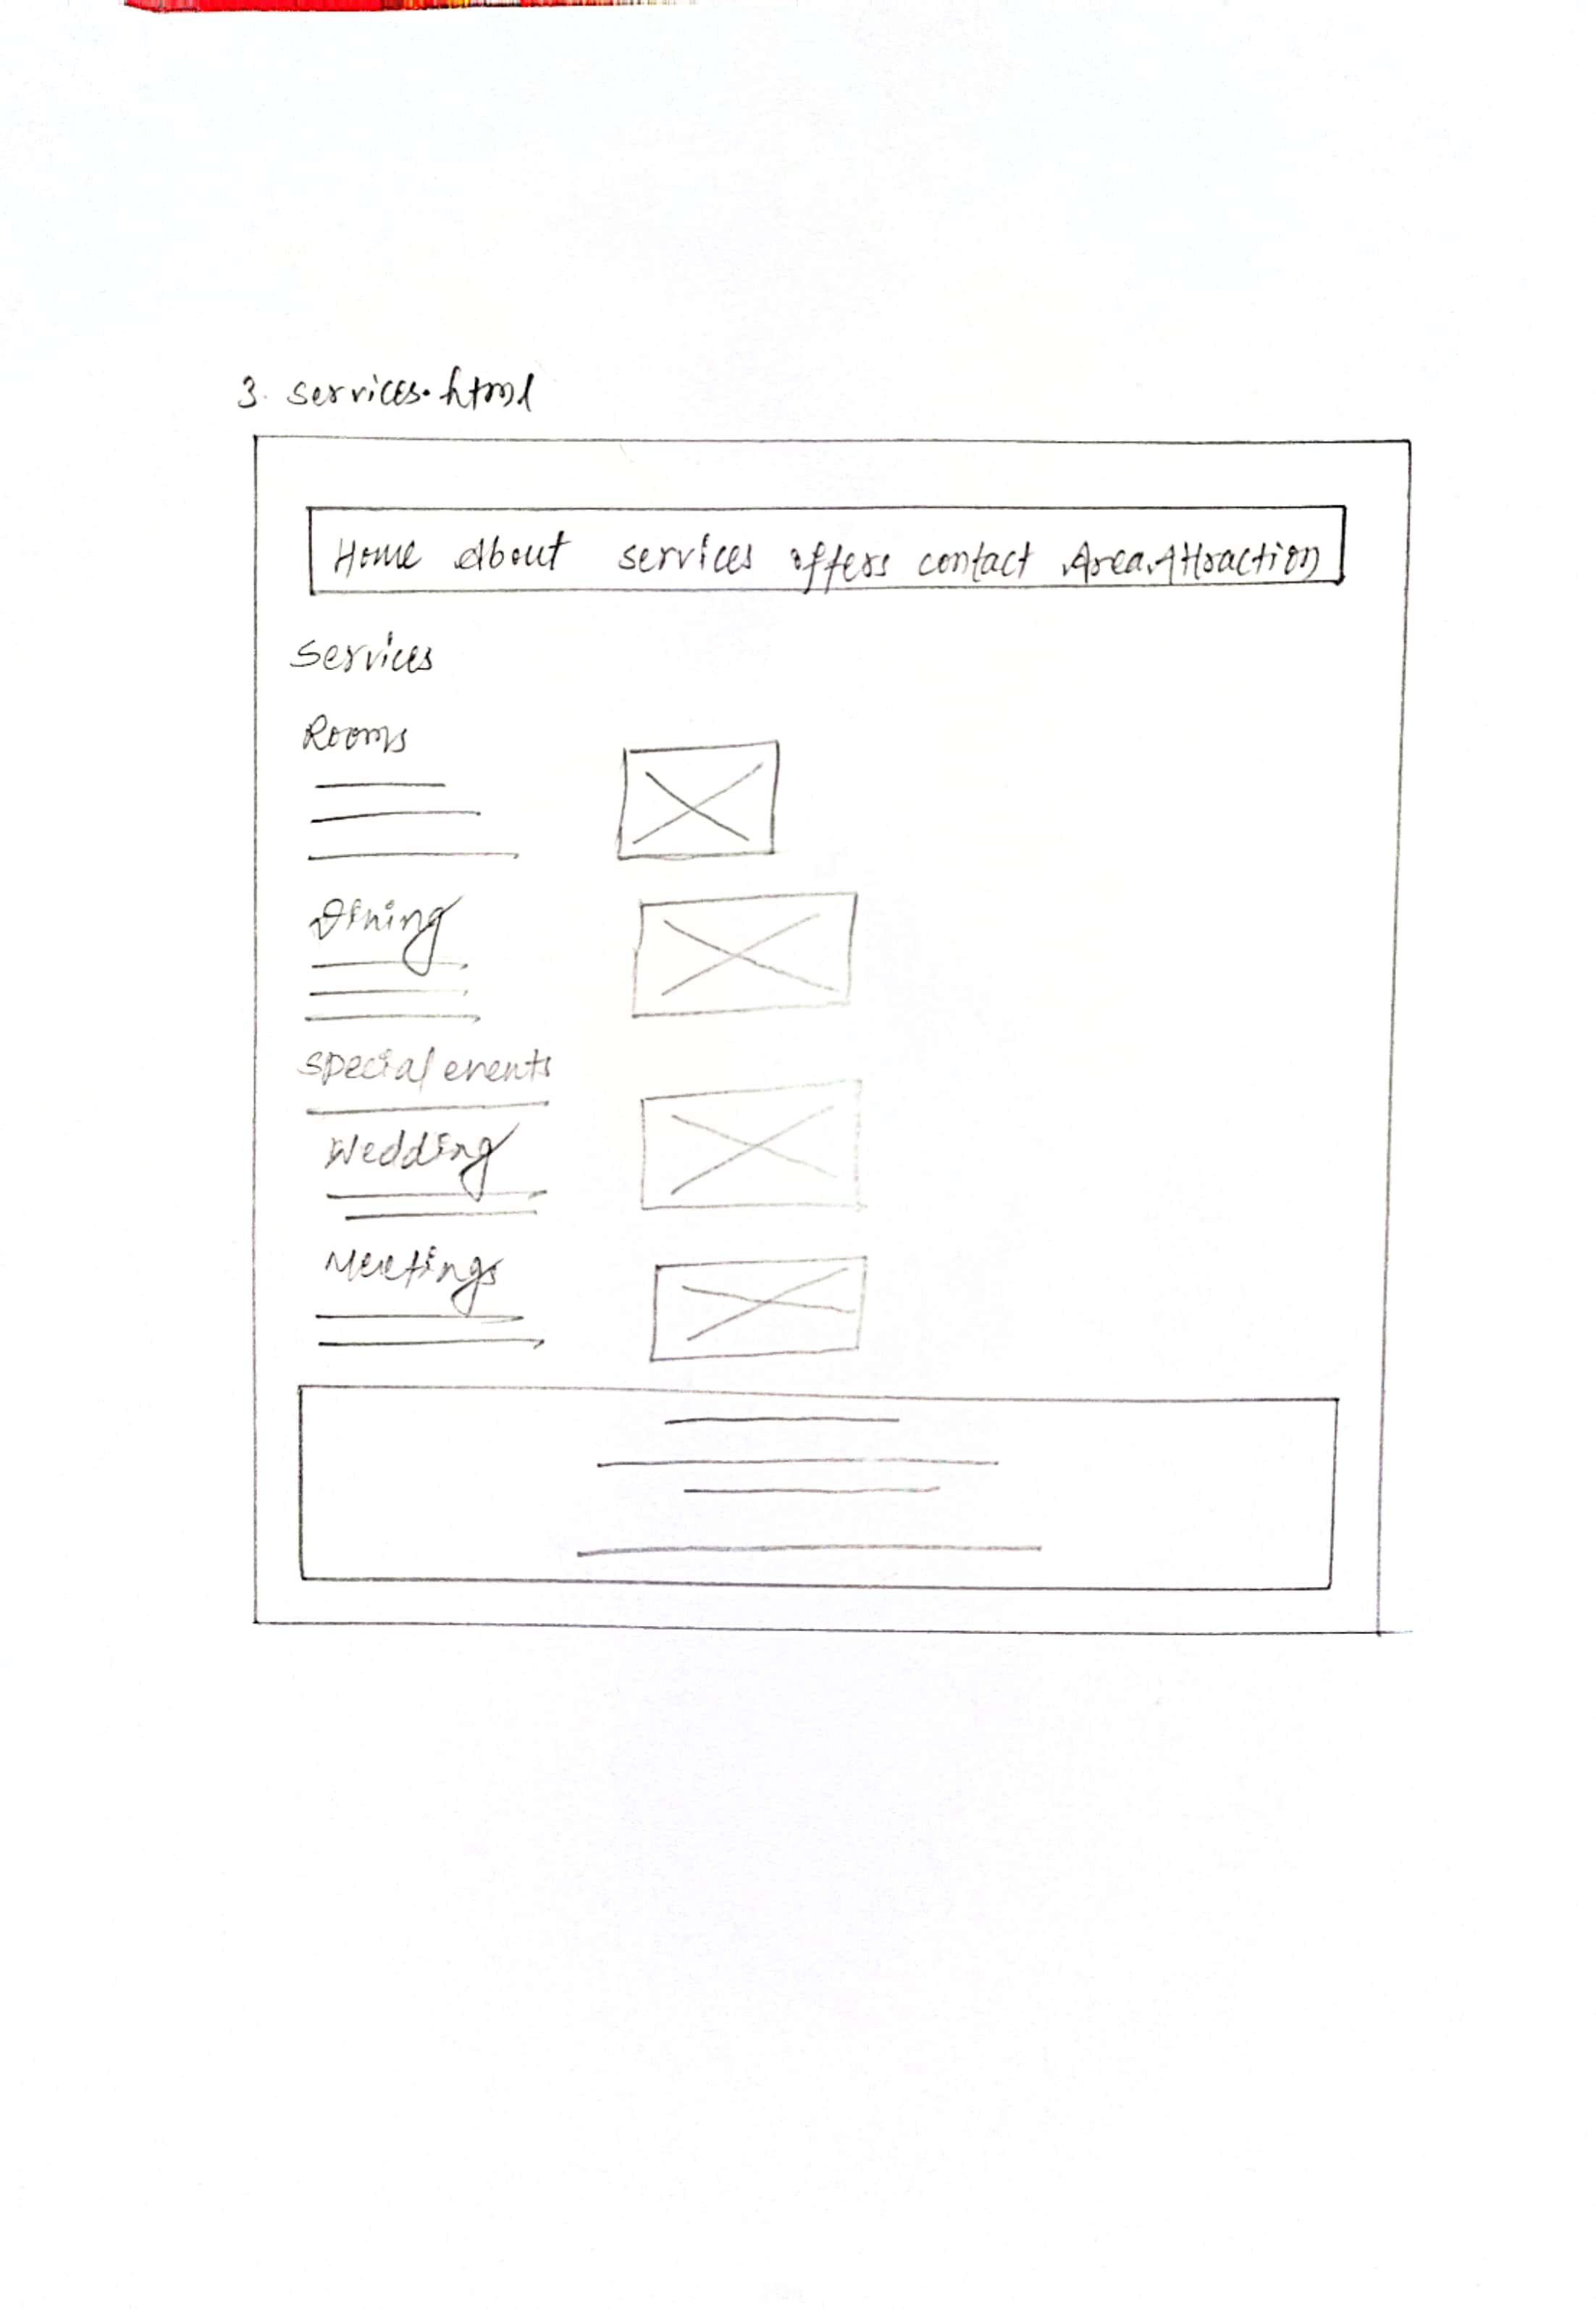 3. services.html
Home About services offers contact Area Attraction
Services
Rooms
Dining
special events
Wedding
Meetings